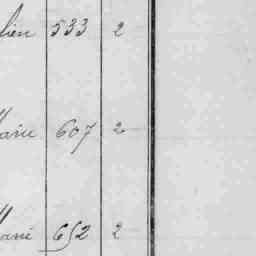 lien 533 2
Marie 607 2
Marie 652 2